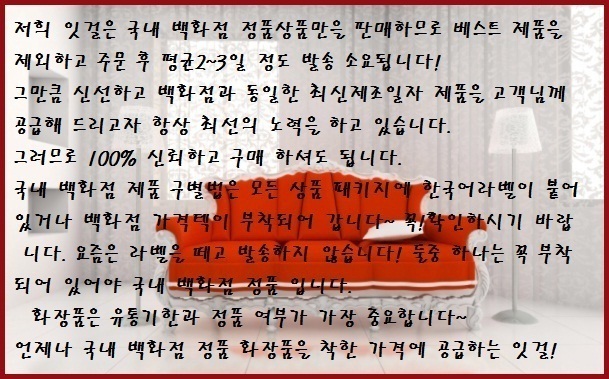 저희 잇걸은 국내 백화점 정품상품만을 판매하므로 베스트 제품을
제외하고 주문 후 평균2~3일 정도 발송 소요됩니다!
그만큼 신선하고 백화점과 동일한 최신제조일자 제품을 고객님께
공급해 드리고자 항상 최선의 노력을 하고 있습니다.
그러므로 100% 신뢰하고 구매 하셔도 됩니다.
국내 백화점 제품 구별법은 모든 상품 패키지에 한국어라벨이 붙어
있거나 백화점 가격텍이 부착되어 갑니다~ 꼭!확인하시기 바랍
니다. 요즘은 라벨을 떼고 발송하지 않습니다! 둘중 하나는 꼭 부착
되어 있어야 국내 백화점 정품 입니다.
화장품은 유통기한과 정품 여부가 가장 중요합니다~
언제나 국내 백화점 정품 화장품을 착한 가격에 공급하는 잇걸!